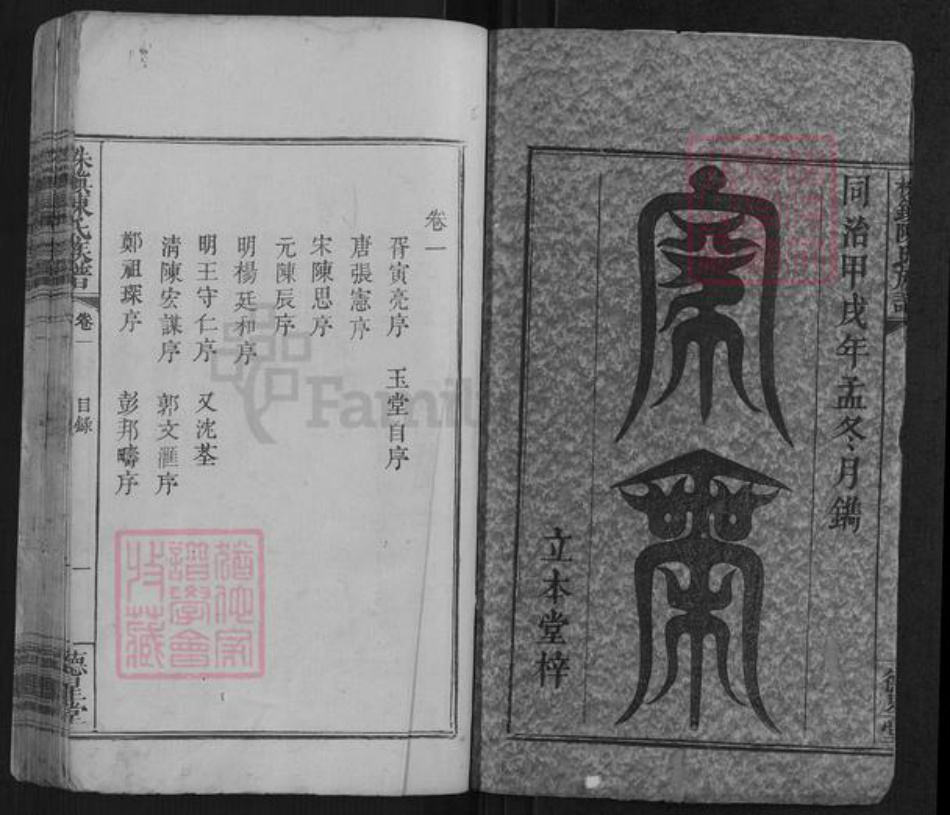 同治甲戌年孟冬月鐫
宗譜
立本堂梓
卷一
胥寅亮序 玉堂自序
唐張憲序
宋陳思序
元陳辰序
明楊廷和序
明王守仁序 又沈荃
清陳宏謀序 郭文滙序
鄭祖琛序 彭邦疇序
陳氏族譜
卷一
目錄
一
德星堂
猶他家譜學會收藏
Famil